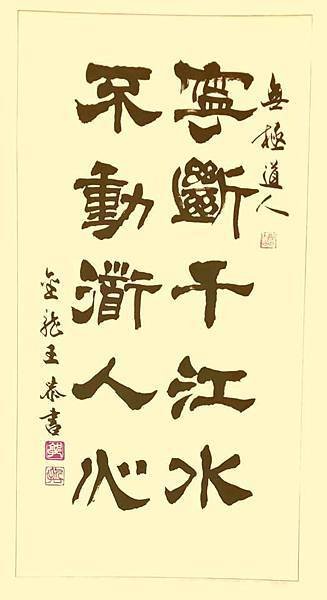 無極道人
寧斷千江水
不動道人心
金龍王恭書